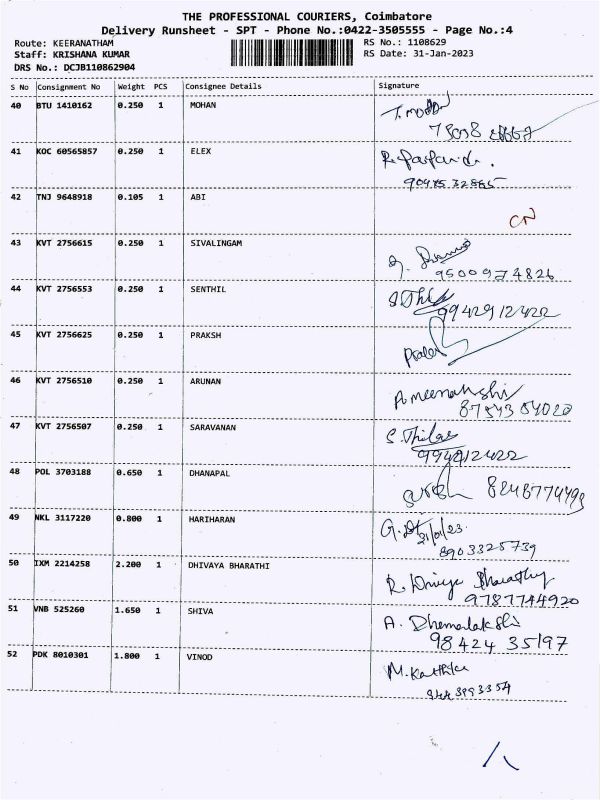 THE PROFESSIONAL COURIERS, Coimbatore
Delivery Runsheet - SPT - Phone No.:0422-3505555 - Page No.:4
Route: KEERANATHAM RS No.: 1108629
Staff: KRISHANA KUMAR RS Date: 31-Jan-2023
DRS No.: DCJB110862904
S No Consignment No Weight PCS Consignee Details Signature
40 BTU 1410162 0.250 1 MOHAN
41 KOC 60565857 0.250 1 ELEX
42 TNJ 9648918 0.105 1 ABI
CN
43 KVT 2756615 0.250 1 SIVALINGAM
9500974826
44 KVT 2756553 0.250 1 SENTHIL
9942912422
45 KVT 2756625 0.250 1 PRAKSH
46 KVT 2756510 0.250 1 ARUNAN
A.meenakshi
47 KVT 2756507 0.250 1 SARAVANAN
9942912422
48 POL 3703188 0.650 1 DHANAPAL
8248774493
49 NKL 3117220 0.800 1 HARIHARAN
8903325739
50 IXM 2214258 2.200 1 DHIVAYA BHARATHI
R. Divya Bharathy
9787744920
51 VNB 525260 1.650 1 SHIVA
A. Dhanalakshi
98424 35197
52 PDK 8010301 1.800 1 VINOD
M.Karthika